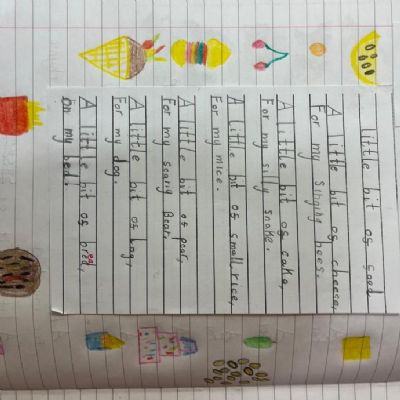 A little bit of food
A little bit of cheese,
For my singing bees.
A little bit of cake,
For my silly snake.
A little bit of small rice,
For my mice.
A little bit of pear,
For my scary Bear,
A little bit of hog,
For my dog.
A little bit of bread,
On my bed.